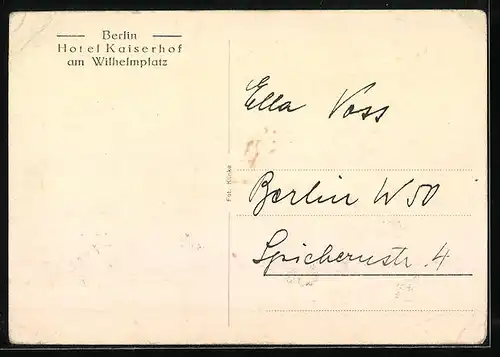 Berlin
Hotel Kaiserhof
am Wilhelmplatz
Ella Voss
Fot. Klinke
Berlin W 50
Spichernstr. 4